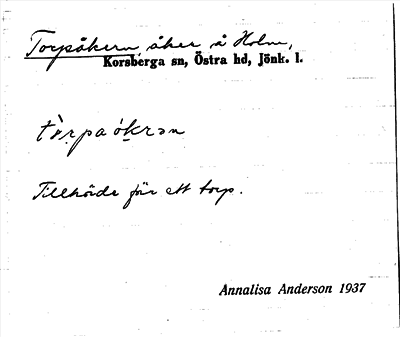 Torpåkern, åker å Holm,
Korsberga sn, Östra hd, Jönk. l.
tòrpaókrən
Tillhörde förr ett torp.
Annalisa Anderson 1937